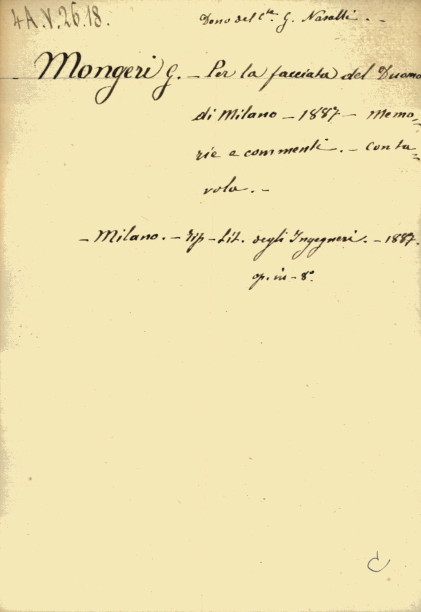 4A.V.26.18.
Dono del Cte G. Nasalli. -
Mongeri G. - Per la facciata del Duomo
di Milano - 1887 - Memo-
rie e commenti. - Con ta-
vola. -
- Milano. - Tip - Lit. degli Ingegneri. - 1887.
op. in - 8°
C